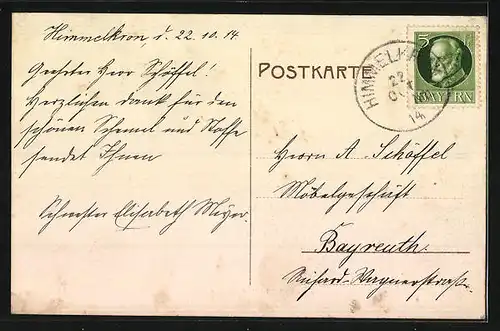 Himmelkron, d. 22.10.14.
Geehrter Herr Schöffel!
Herzlichen Dank für den
schönen Schemel und Stoffe
sendet Ihnen
Schwester Elisabeth Meyer.
POSTKARTE
HIMMELKRON
22
OKT
14
5
BAYERN
Herrn A. Schöffel
Möbelgeschäft
Bayreuth.
Richard-Wagnerstraße.